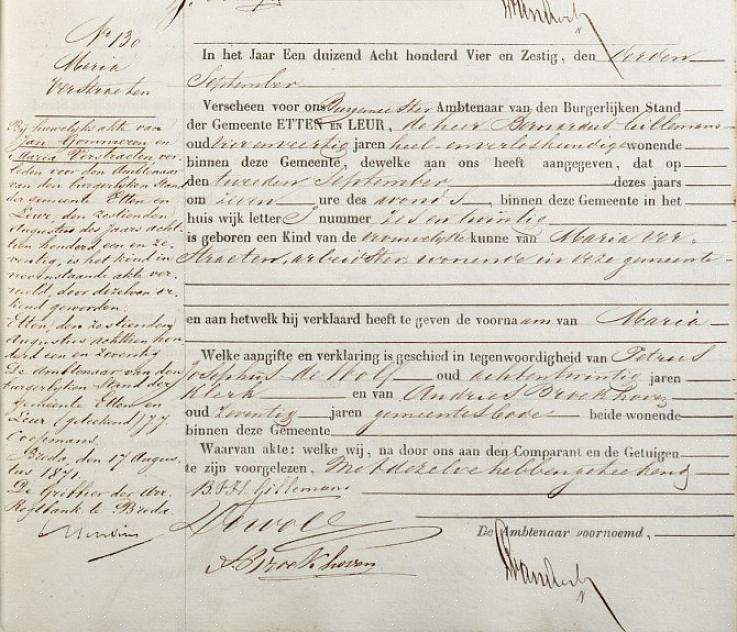 No 130
Maria
Verstraeten
Bij huwelijks akte van
Jan Gommeren en
Maria Verstraeten ver-
leden voor den Ambtenaar
van den burgerlijken Stand
der gemeente Etten en
Leur, den zestienden
Augustus des jaars acht-
tien honderd een en ze-
ventig, is het kind in
nevenstaande akte ver-
meld, door dezelven er-
kend geworden.
Etten, den zestienden
Augustus achttien hon
derd een en zeventig
De Ambtenaar van den
burgerlyken Stand der
gemeente Etten en
Leur (geteekend)
Coopmans.
Breda, den 17 Augus-
tus 1871.
De Griffier der Arr.
Regtbank te Breda.
In het Jaar Een duizend Acht honderd Vier en Zestig, den derden
September
Verscheen voor ons Burgemeester Ambtenaar van den Burgerlijken Stand
der Gemeente ETTEN EN LEUR, de heer Bernardus Gillemans
oud vier en veertig jaren heel- en verloskundige wonende
binnen deze Gemeente, dewelke aan ons heeft aangegeven, dat op
den tweeden September dezes jaars
om zeven ure des avonds, binnen deze Gemeente in het
huis wijk letter nummer zes en twintig
is geboren een Kind van de vrouwelijke kunne van Maria Ver-
straeten, arbeidster, wonende in deze gemeente
en aan hetwelk hij verklaard heeft te geven de voornaam van Maria
Welke aangifte en verklaring is geschied in tegenwoordigheid van Petrus
Josephus de Wolf oud acht en twintig jaren
Klerk en van Andries Broekhoven
oud zeventig jaren gemeentebode beide wonende
binnen deze Gemeente
Waarvan akte: welke wij, na door ons aan den Comparant en de Getuigen
te zijn voorgelezen, met dezelve hebben geteekend
Gillemans
Dewolf
A. Broekhoven
De Ambtenaar voornoemd,